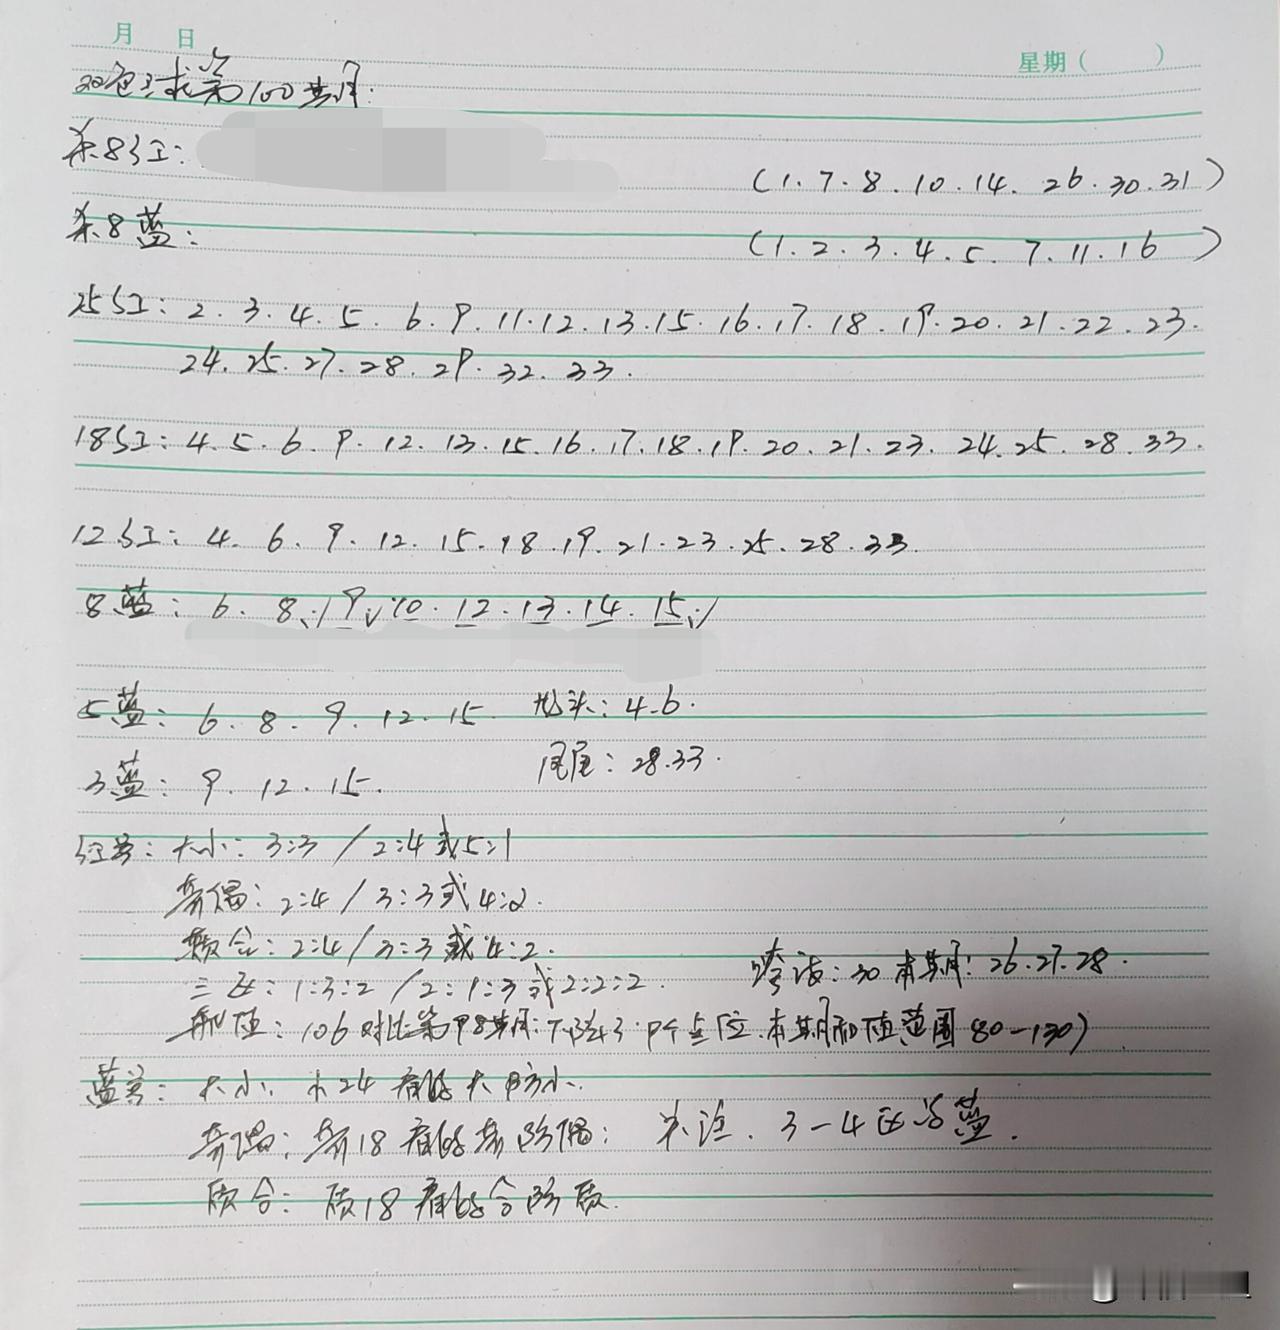 月 日
星期( )
双色球第100期:
杀8红: (1.7.8.10.14.26.30.31)
杀8蓝: (1.2.3.4.5.7.11.16)
25红: 2.3.4.5.6.9.11.12.13.15.16.17.18.19.20.21.22.23.
24.25.27.28.29.32.33.
18红: 4.5.6.9.12.13.15.16.17.18.19.20.21.23.24.25.28.33.
12红: 4.6.9.12.15.18.19.21.23.25.28.33.
8蓝: 6.8.9.10.12.13.14.15
5蓝: 6.8.9.12.15. 龙头: 4.6.
3蓝: 9.12.15. 凤尾: 28.33.
红号: 大小: 3:3/2:4或5:1
奇偶: 2:4/3:3或4:2.
质合: 2:4/3:3或4:2.
三区: 1:3:2/2:1:3或2:2:2. 跨度: 30 本期: 26.27.28.
和值: 106对比第98期:下降 个点位.本期和值范围80-130)
蓝号: 大小: 小24看好大防小.
奇偶: 奇18看好奇防偶: 关注.3-4区 蓝.
质合: 质18看好合防质.